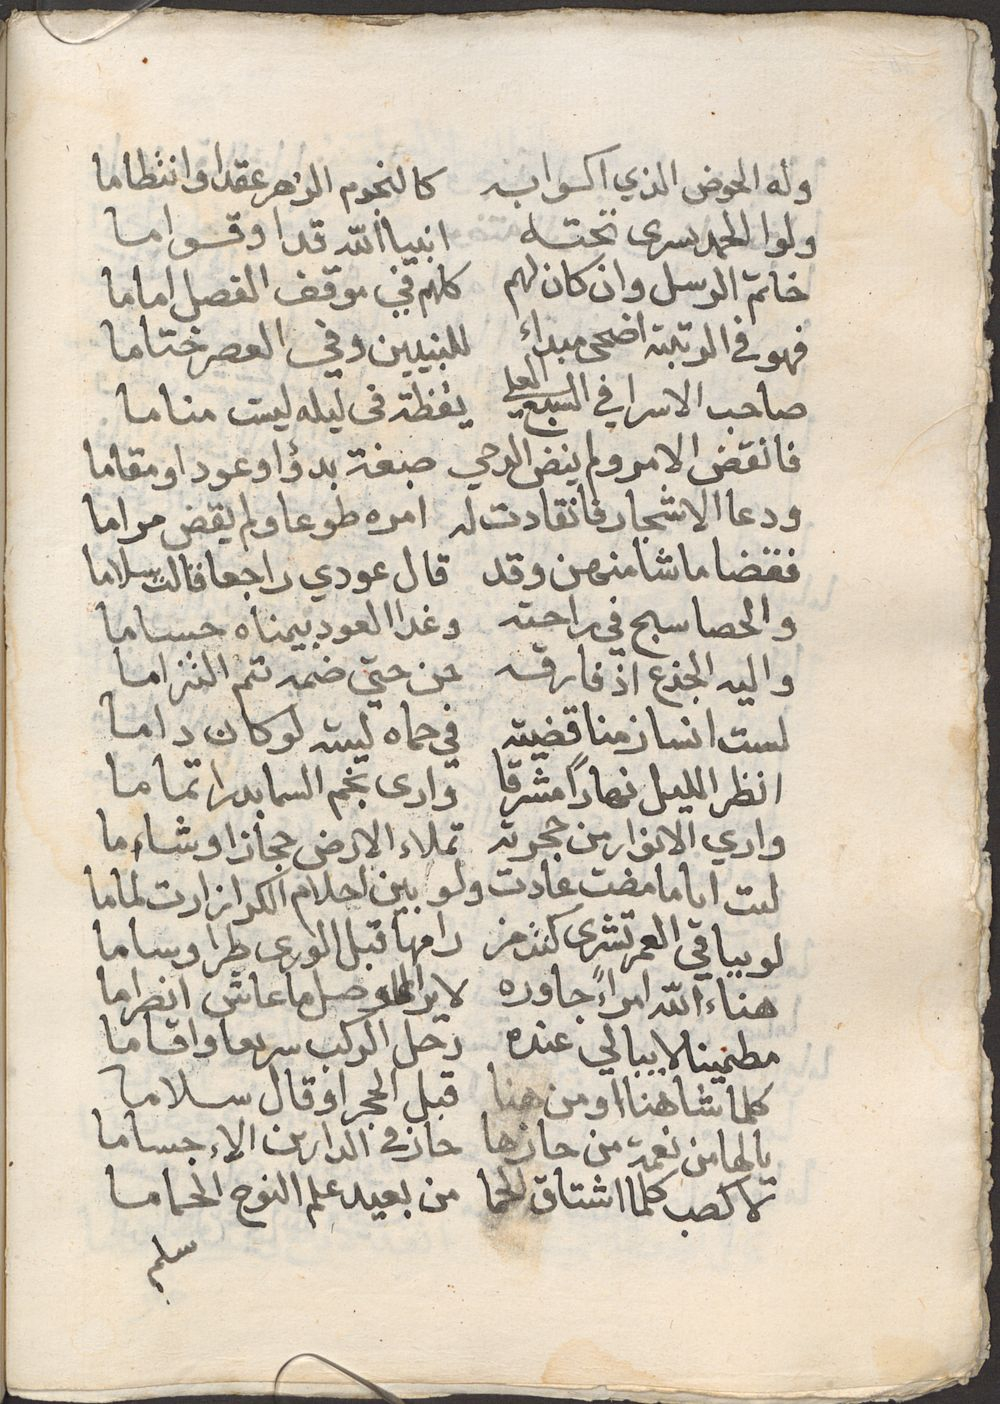 وله الحوض الذي اكوابه كالنجوم الزهر عقدا وانتظاما
ولوا الحمد يسرى تحته انبيا الله قدا وقواما
خاتم الرسل وان كان لهم كلهم في موقف الفصل اماما
فهو في الرتبة اضحى مبداء للنبيين وفي العصر ختاما
صاحب الاسرا في السبع العلي يقظة في ليله ليست مناما
فانقض الامر ولم ينض الدجي صبغة بدؤا وعودا ومقاما
ودعا الاشجار فانقادت له امره طوعا ولم يقض مراما
فقضا ما شا منهن وقد قال عودي راجعا قالت سلاما
والحصا سبح في راحته وغدا العود بيمناه حساما
واليه الجذع اذ فارقه حن حتي ضمه ثم التزاما
لست انسا زمنا قضيته في حماه ليته لو كان داما
انظر الليل نهاراً مشرقا وارى نجم السما بدرا تماما
واري الانوار من حجرته تملاء الارض حجازا وشاءما
ليت اياما مضت عادت ولو بين احلام الكرا زارت لماما
لو بباقي العمر تشرى كنت من رامها قبل الورى طرا وساما
هناء الله امراءً جاوره لا يرا للوصل ما عاش انصراما
مطمينا لا يبالي عنده رحل الركب سريعا واقاما
كلما شا هنا او من هنا قبل الحجر او قال سلاما
يالها من نعمة من حازها حاز في الدارين الاء جساما
لا كصب كلما اشتاق الحما من بعيد علم النوح الحماما
سلم